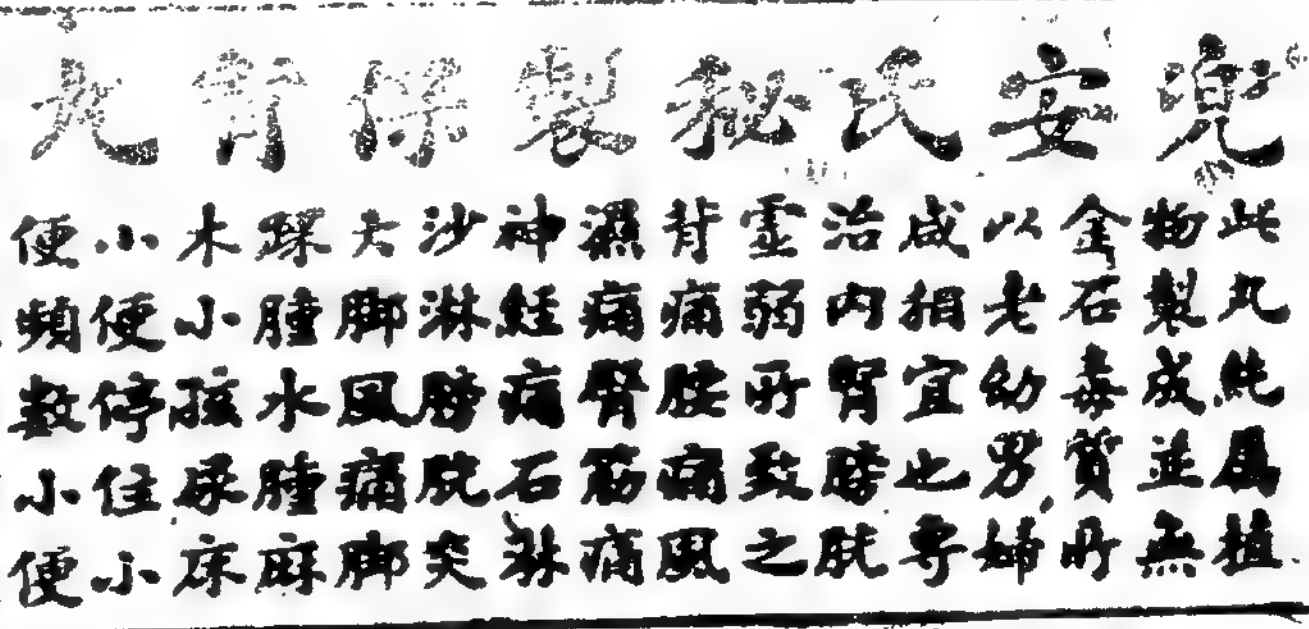 兜安氏秘製保腎丸
此丸純屬植
物製成並無
金石毒質所
以老幼男婦
咸相宜也專
治內腎膀胱
虛弱所致之
背痛腰痛風
濕痛臂筋痛
神經痛石淋
沙淋膀胱炎
大脚風痛脚
踝腫水腫麻
木小孩尿床
小便停住小
便頻數小便